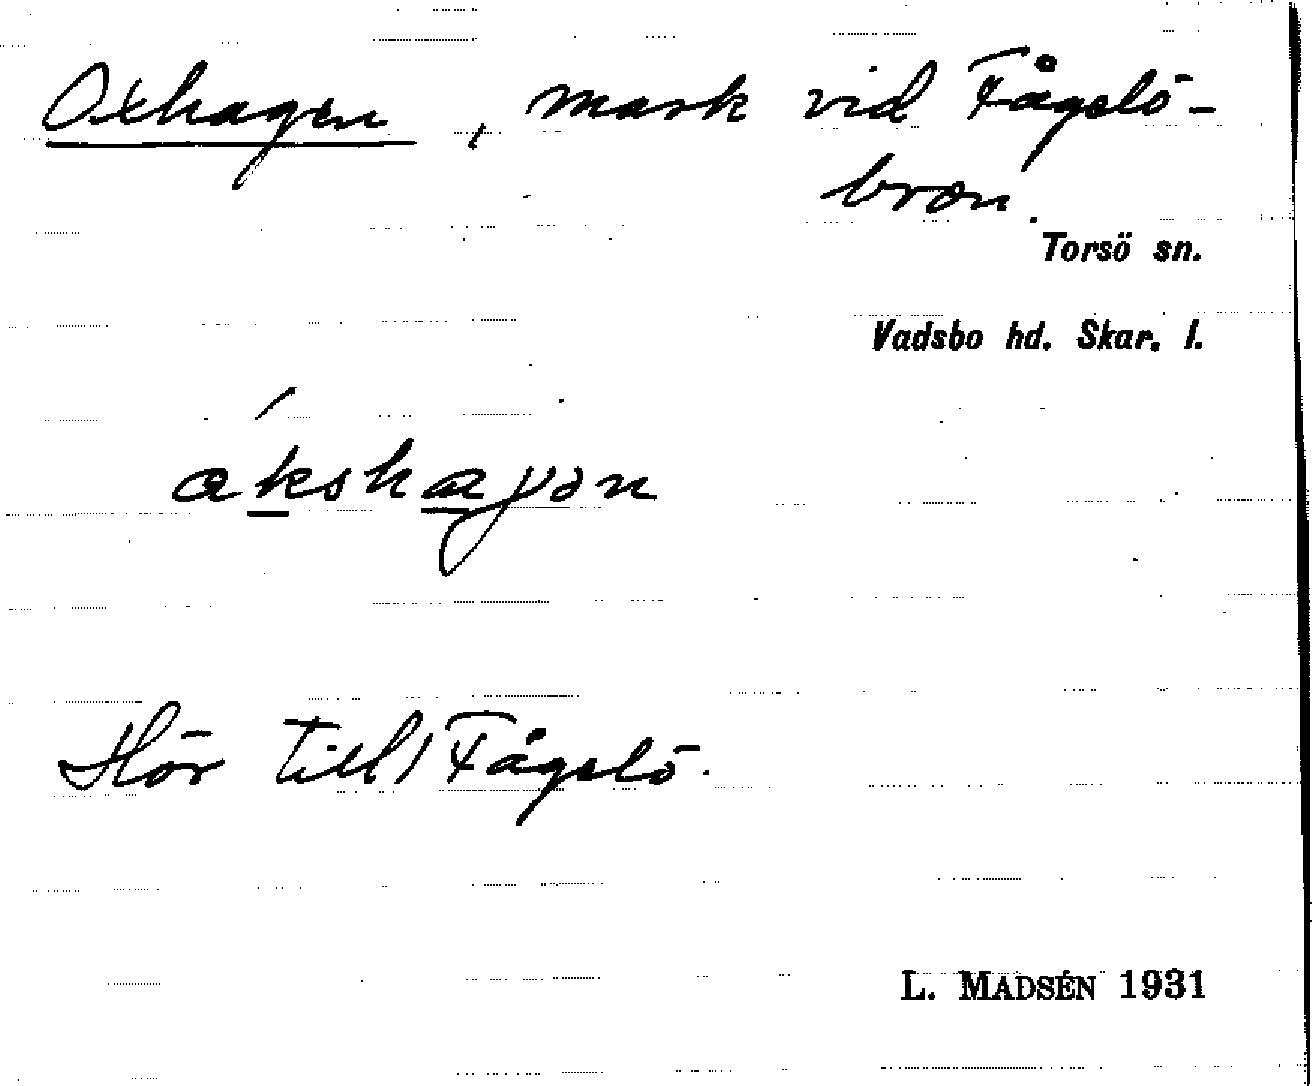 Oxhagen, mark vid Fågelö-
bron.
Torsö sn.
Vadsbo hd. Skar. l.
ákshaγən
Hör till Fågelö.
L. MADSÉN 1931